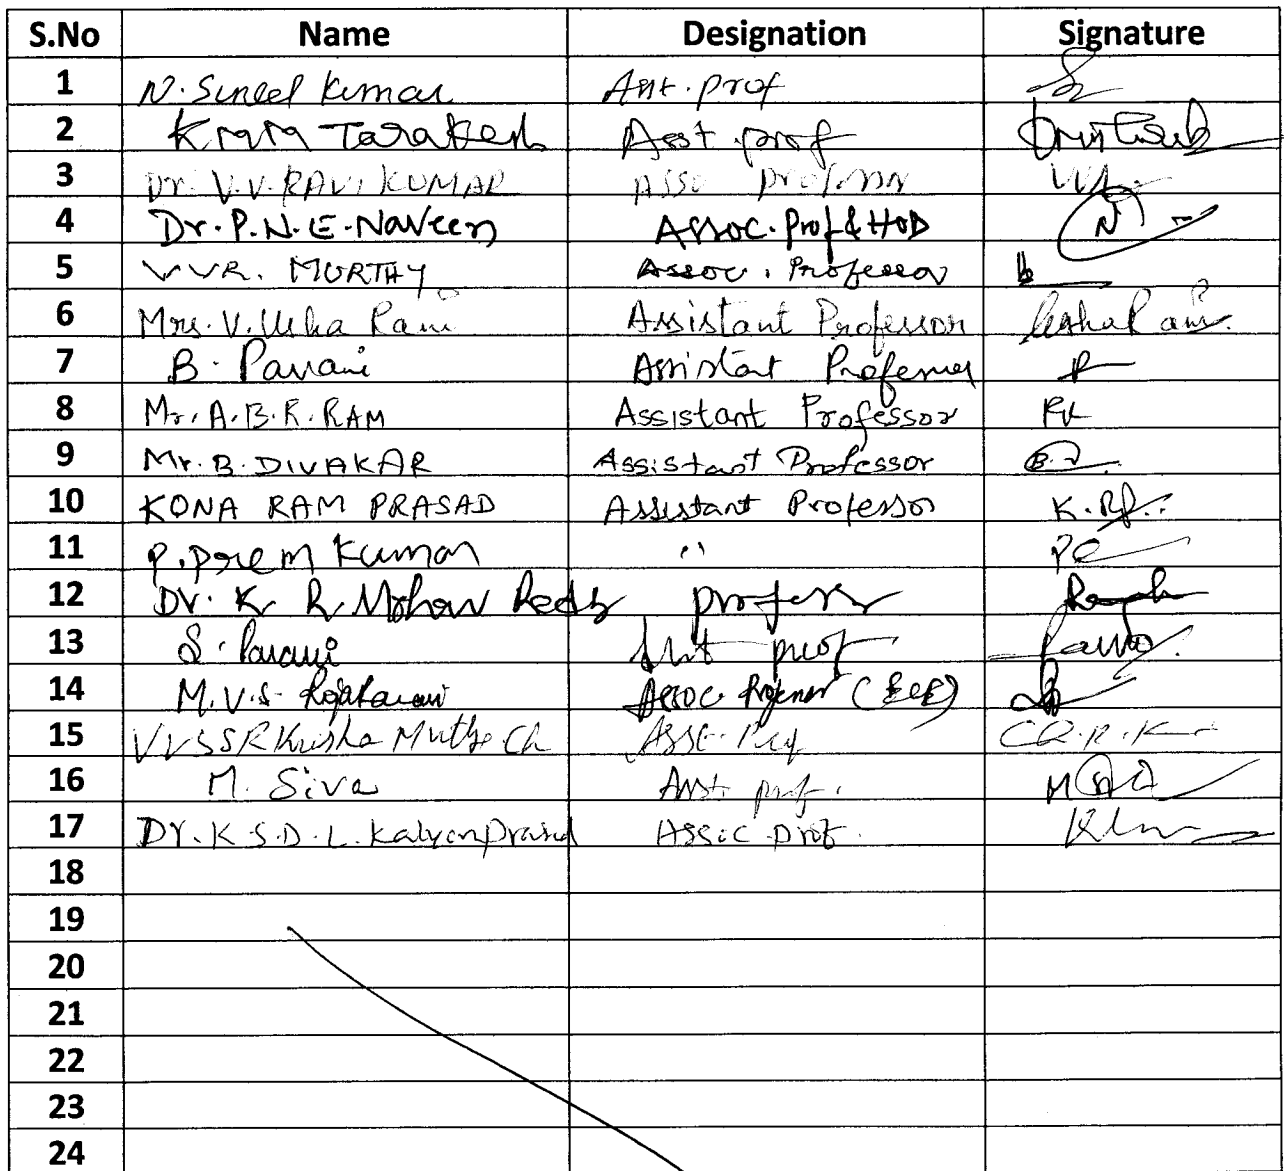 S.No Name Designation Signature
1 N. Suneel Kumar Asst. prof
2 KMM Tarakesh Asst. prof
3 Dr. V.V. RAVI KUMAR Asso professor
4 Dr. P.N.E. Naveen Assoc. Prof & HOD
5 VVR. MURTHY Assoc. Professor
6 Mrs. V. Usha Rani Assistant Professor Usha Rani.
7 B. Pavani Assistant Professor
8 Mr. A.B.R. RAM Assistant Professor
9 Mr. B. DIVAKAR Assistant Professor
10 KONA RAM PRASAD Assistant Professor
11 P. Prem Kumar "
12 Dr. K R Mohan Reddy professor
13 S. Pavani Asst prof
14 M.V.S. Assoc Professor (ECE)
15 VVSSR Krishna Ch Asst. Prof
16 M. Siva Asst. prof.
17 Dr. K.S.D.L. Kalyan Prasad Assoc prof.
18
19
20
21
22
23
24